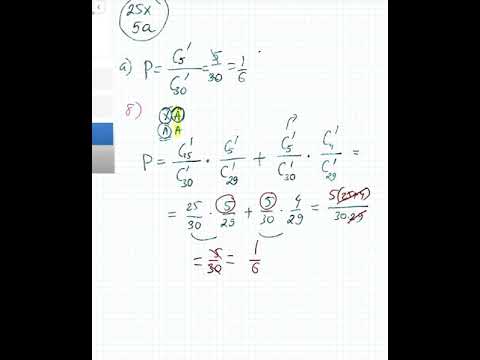 25x
5a
a) P = C₅¹/C₃₀¹ = 5/30 = 1/6
б)
X A
A A
P = C₂₅¹/C₃₀¹ · C₅¹/C₂₉¹ + C₅¹/C₃₀¹ · C₄¹/C₂₉¹ =
= 25/30 · 5/29 + 5/30 · 4/29 = 5(25+4)/30·29
= 5/30 = 1/6